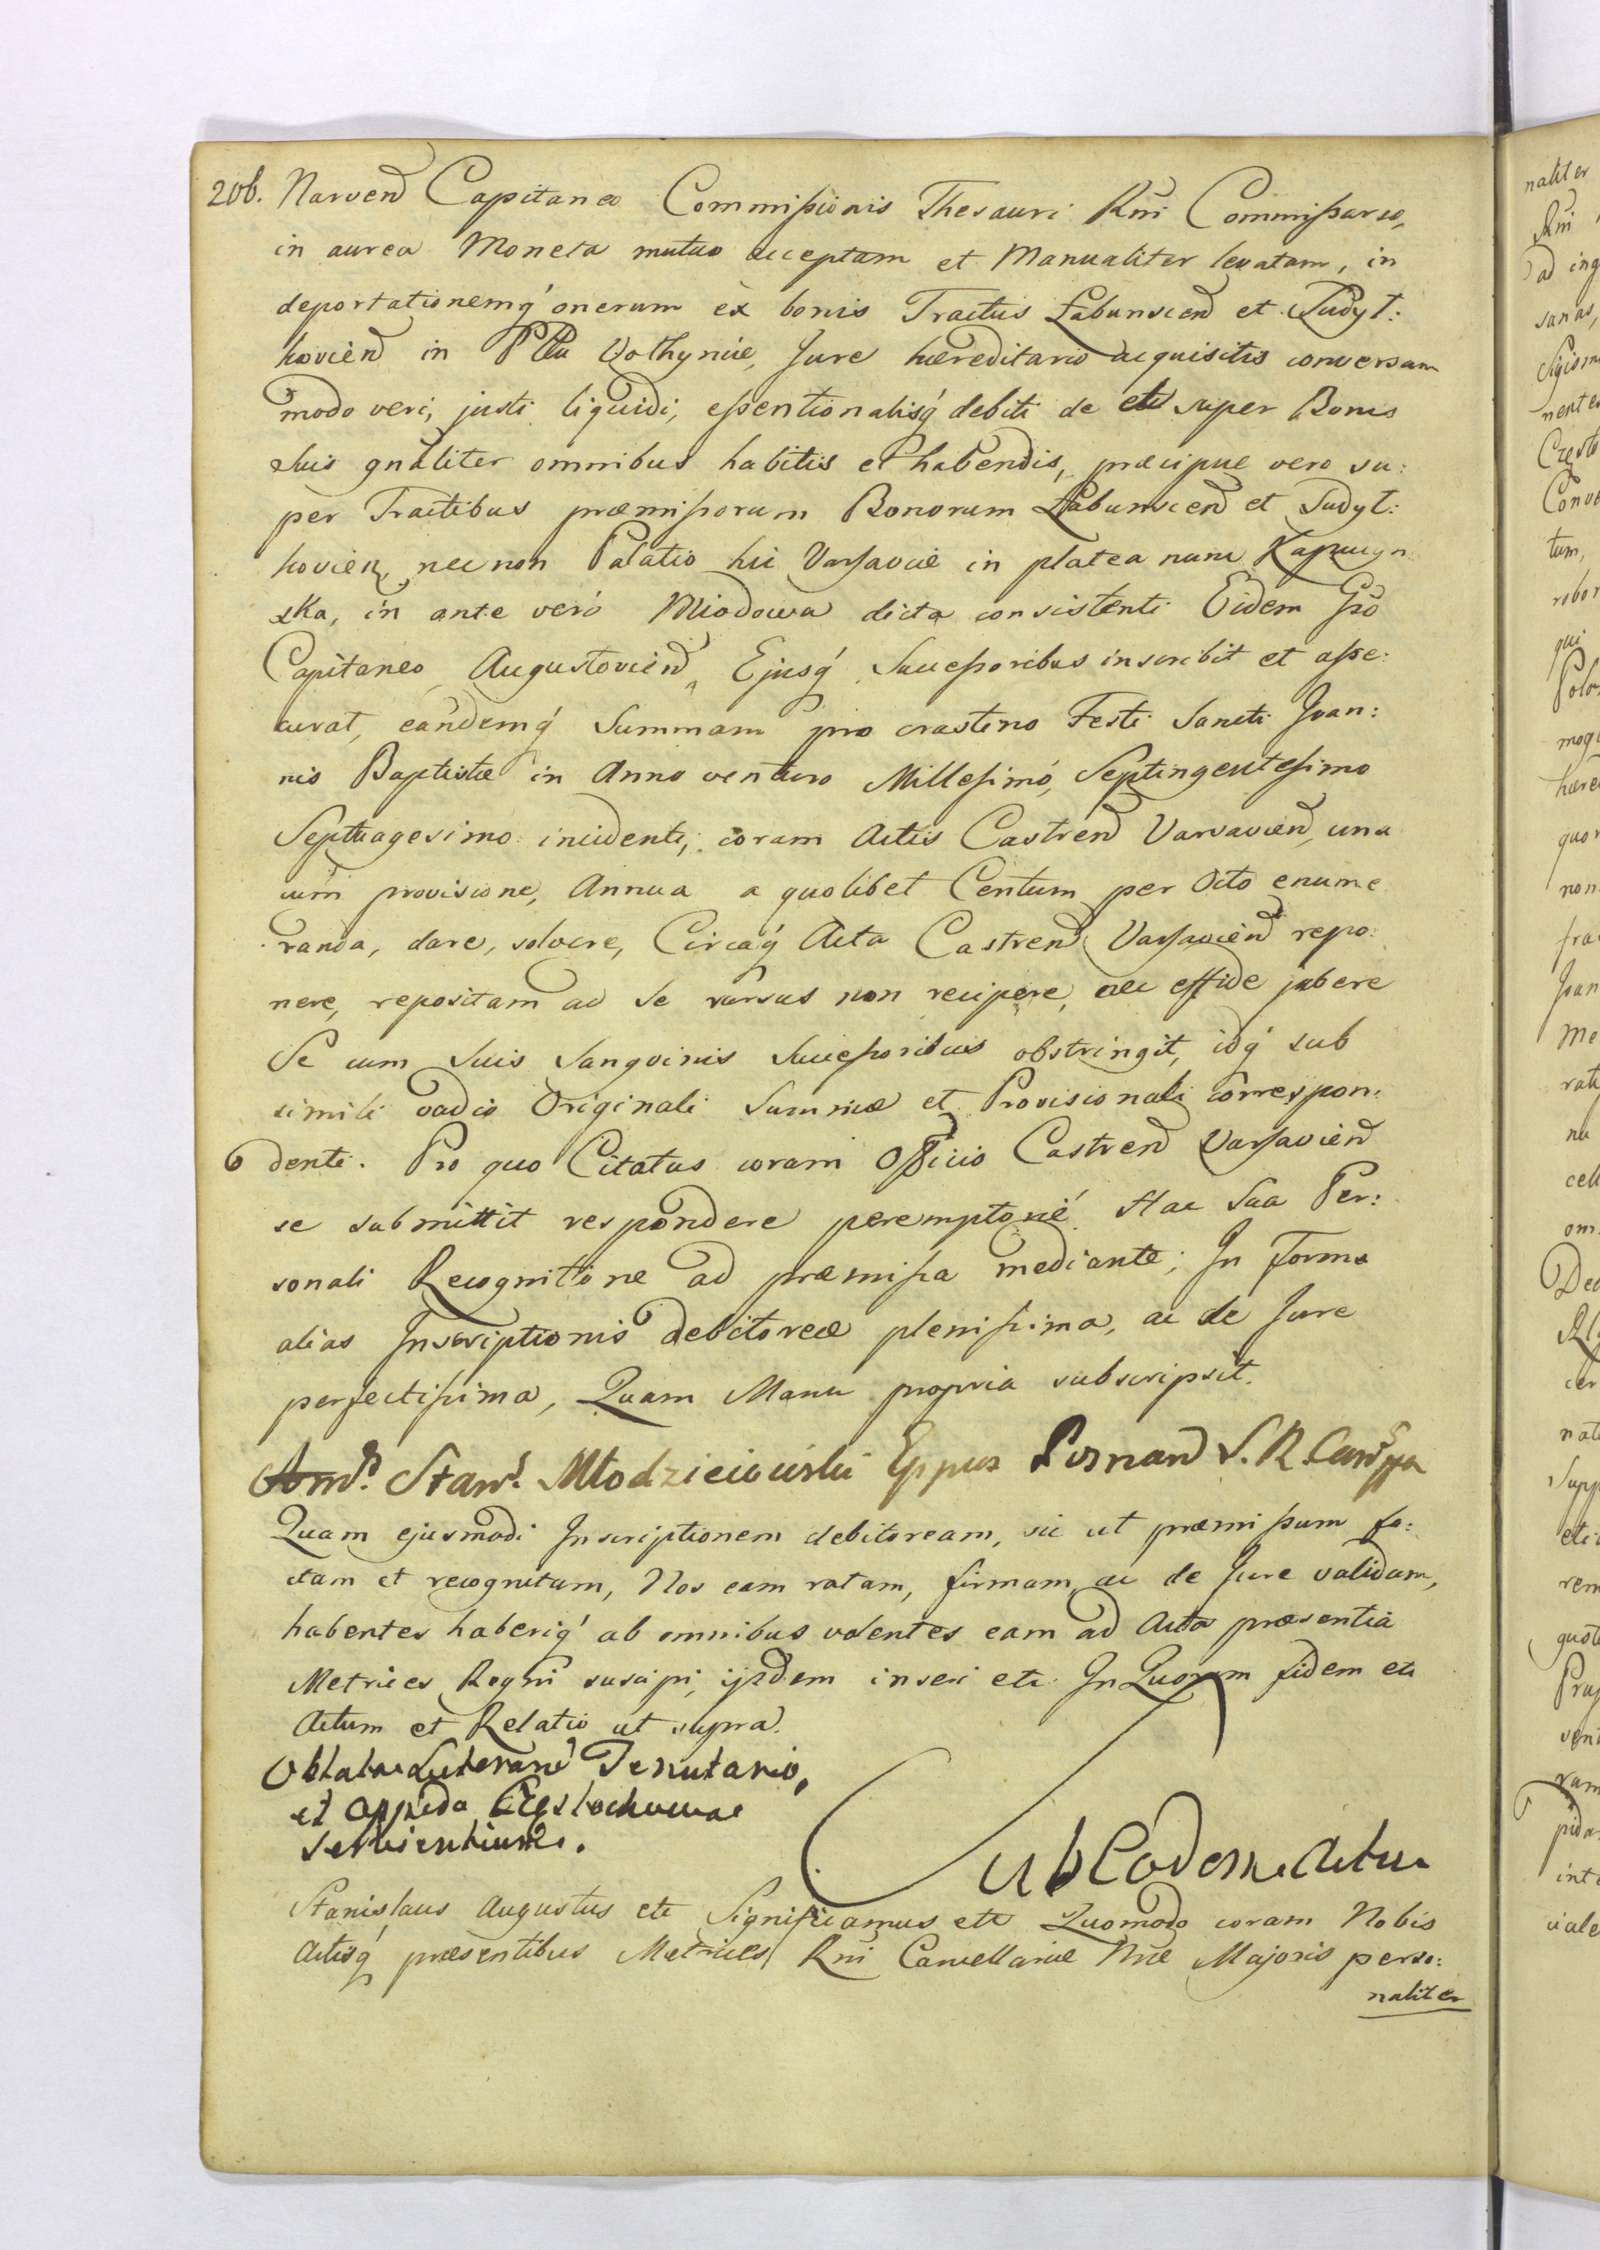 206. Narven Capitaneo Commissionis Thesauri Rni Commissario,
in aurea Moneta mutuo acceptam et Manualiter levatam, in
deportationemq' onerum ex bonis Tractus Łabunscen et Sudyl:
kovien in Pltu Volhyniæ, Jure hæreditario acquisitis conversam
modo veri, justi liquidi, essentionalisq' debiti de et super Bonis
Suis gnaliter omnibus habitis et habendis, præcipue vero su:
per Tractibus præmissorum Bonorum Łabunscen et Sudyl:
kovien, nec non Palatio hic Varsaviæ in platea nunc Kapucyn
ska, in ante vero Miodowa dicta consistenti Eidem Gso
Capitaneo Augustovien, Ejusq' Successoribus inscribit et asse:
curat, eandemq' Summam pro crastino Festi Sancti Joan:
nis Baptistæ in Anno venturo Millesimo, Septingentesimo
Septuagesimo incidenti, coram Actis Castren Varsavien, una
cum provisione, Annua a quolibet Centum per Octo enume
randa, dare, solvere, Circaq' Acta Castren Varsavien repo:
nere, repositam ad se rursus non recipere, nec effide jubere
Se cum Suis Sanguinis Successoribus obstringit, idq' sub
simili vadio Originali Summæ et Provisionali correspon:
denti. Pro quo Citatus coram Officio Castren Varsavien
se submittit respondere peremptorie. Hac Sua Per:
sonali Recognitione ad præmissa mediante; In Forma
alias Inscriptionis debitoreæ plenissima, ac de Jure
perfectissima, Quam Manu propria subscripsit.
Stan. Młodzieiowski Eppus Posnan S. R.
Quam ejusmodi Inscriptionem debitoream, sic ut præmissum fa:
ctam et recognitam, Nos eam ratam, firmam, ac de Jure validam,
habentes haberiq' ab omnibus volentes eam ad Acta præsentia
Metrices Regni suscipi, ijsdem inseri etc. In Quorum fidem etc
Actum et Relatio ut supra.
Oblata Tenutario,
et oppido Częstochoviae
servientium.
Sub Eodem Actu
Stanislaus Augustus etc Significamus etc Quomodo coram Nobis
Actisq' præsentibus Metrices Rni Cancellariæ Nræ Majoris perso:
naliter